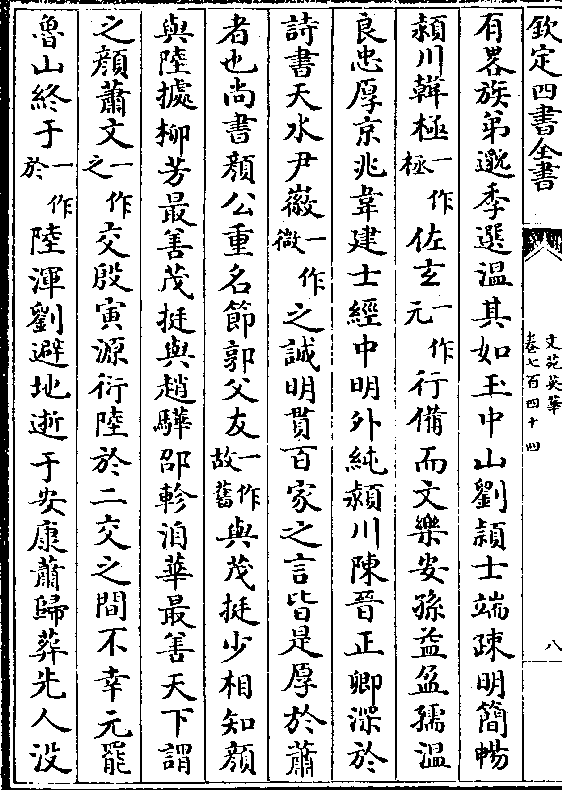 欽定四庫全書
文苑英華
卷七百四十四
八
有畧族弟邈季選温其如玉中山劉頴士端疎明簡暢
頴川韓極一作極佐玄一作元行備而文樂安孫益盈孺温
良忠厚京兆韋建士經中明外純頴川陳晉正卿深於
詩書天水尹嶶一作微之誠明貫百家之言皆是厚於蕭
者也尚書顔公重名節郭父友一作故舊與茂挺少相知顔
與陸據柳芳最善茂挺與趙驊邵軫洎華最善天下謂
之顔蕭文一作之交殷寅源衍陸於二交之間不幸元罷
魯山終于一作於陸渾劉避地逝于安康蕭歸葬先人没